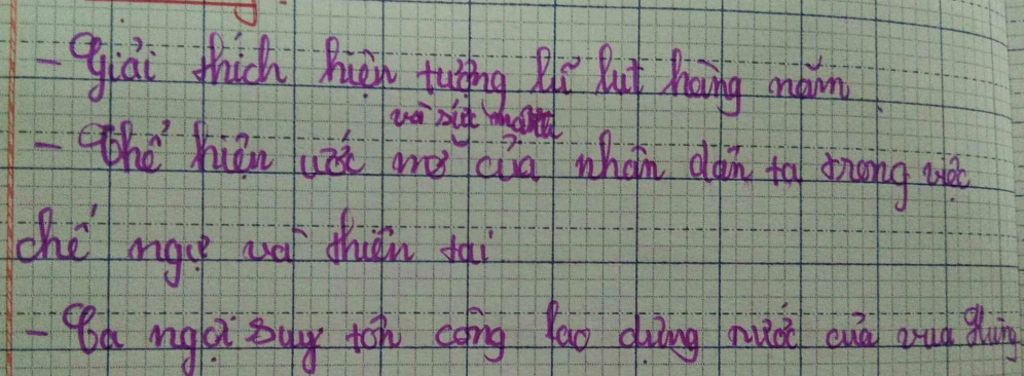 - Giải thích hiện tượng lũ lụt hàng năm
và sức mạnh
- Thể hiện ước mơ của nhân dân ta trong việc
chế ngự và thiên tai
- Ca ngợi suy tôn công lao dựng nước của vua Hùng